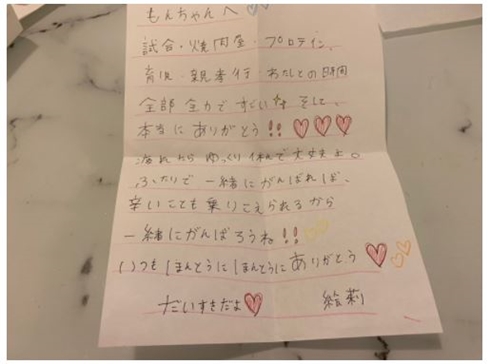 もんちゃんへ♡♡
試合・焼肉屋・プロテイン、
育児・親孝行・わたしとの時間
全部全力ですごいな そして、
本当にありがとう!!♡♡♡
疲れたらゆっくり休んで大丈夫よ。
ふたりで一緒にがんばれば、
辛いことも乗りこえられるから
一緒にがんばろうね!!♡♡
いつもほんとうにほんとうにありがとう♡♡♡
だいすきだよ♡ 絵莉